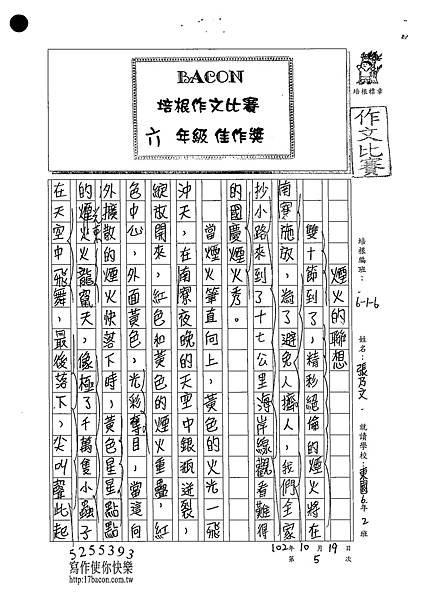 培根標章
作文比賽
BACON
培根作文比賽
六年級 佳作獎
培根編班：6-1-6 姓名：張乃文 就讀學校：東園6年2班
煙火的聯想
雙十節到了，精彩絕倫的煙火將在
南寮施放，為了避免人擠人，我們全家
抄小路來到了十七公里海岸線觀看難得
的國慶煙火秀。
當煙火筆直向上，黃色的火光一飛
沖天，在南寮夜晚的天空中銀瓶迸裂，
綻放開來，紅色和黃色的煙火重疊，紅
色中心，外面黃色，光彩奪目，當這向
外擴散的煙火快落下時，黃色星星點點
的煙火火龍竄天，像極了千萬隻小蟲子
在天空中飛舞，最後落下，尖叫聲此起
102年10月19日
第5次
5255393
寫作使你快樂
http://17bacon.com.tw